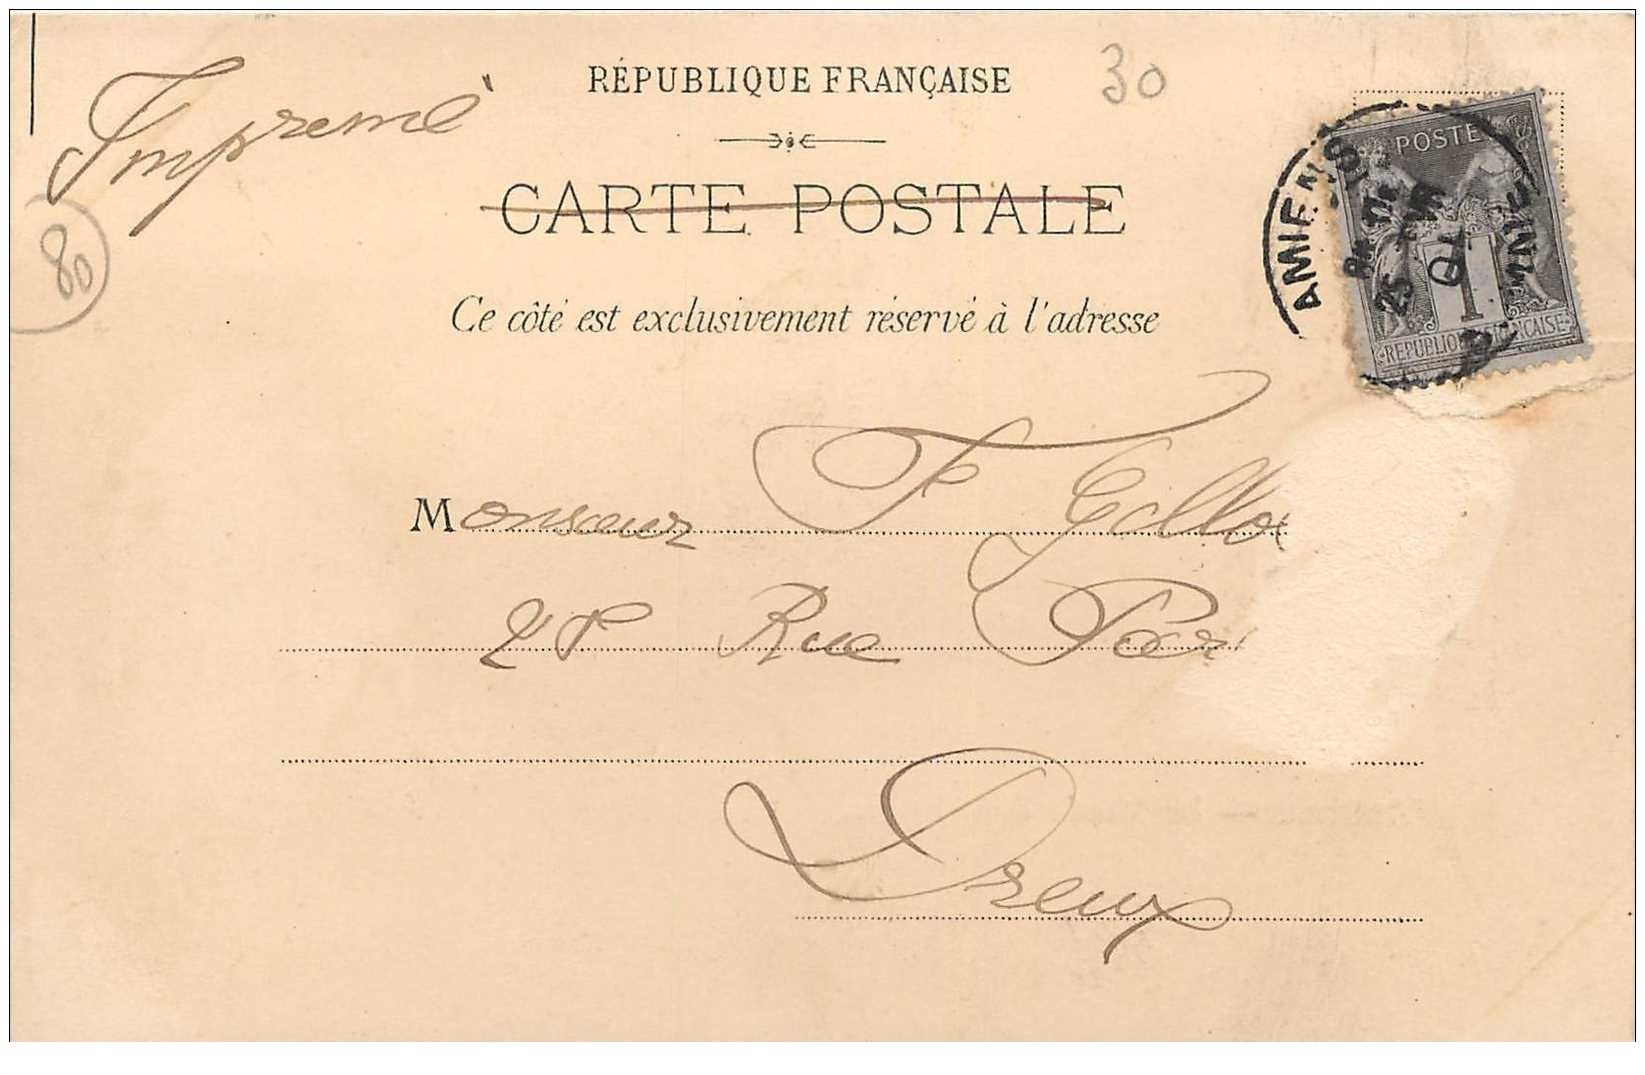 Impremé
RÉPUBLIQUE FRANÇAISE
30
CARTE POSTALE
80
Ce côté est exclusivement réservé à l'adresse
POSTE
1
REPUBLIQUE FRANÇAISE
AMIENS
25 AVR 01
SOMME
Monsieur F
Rue
Dreux